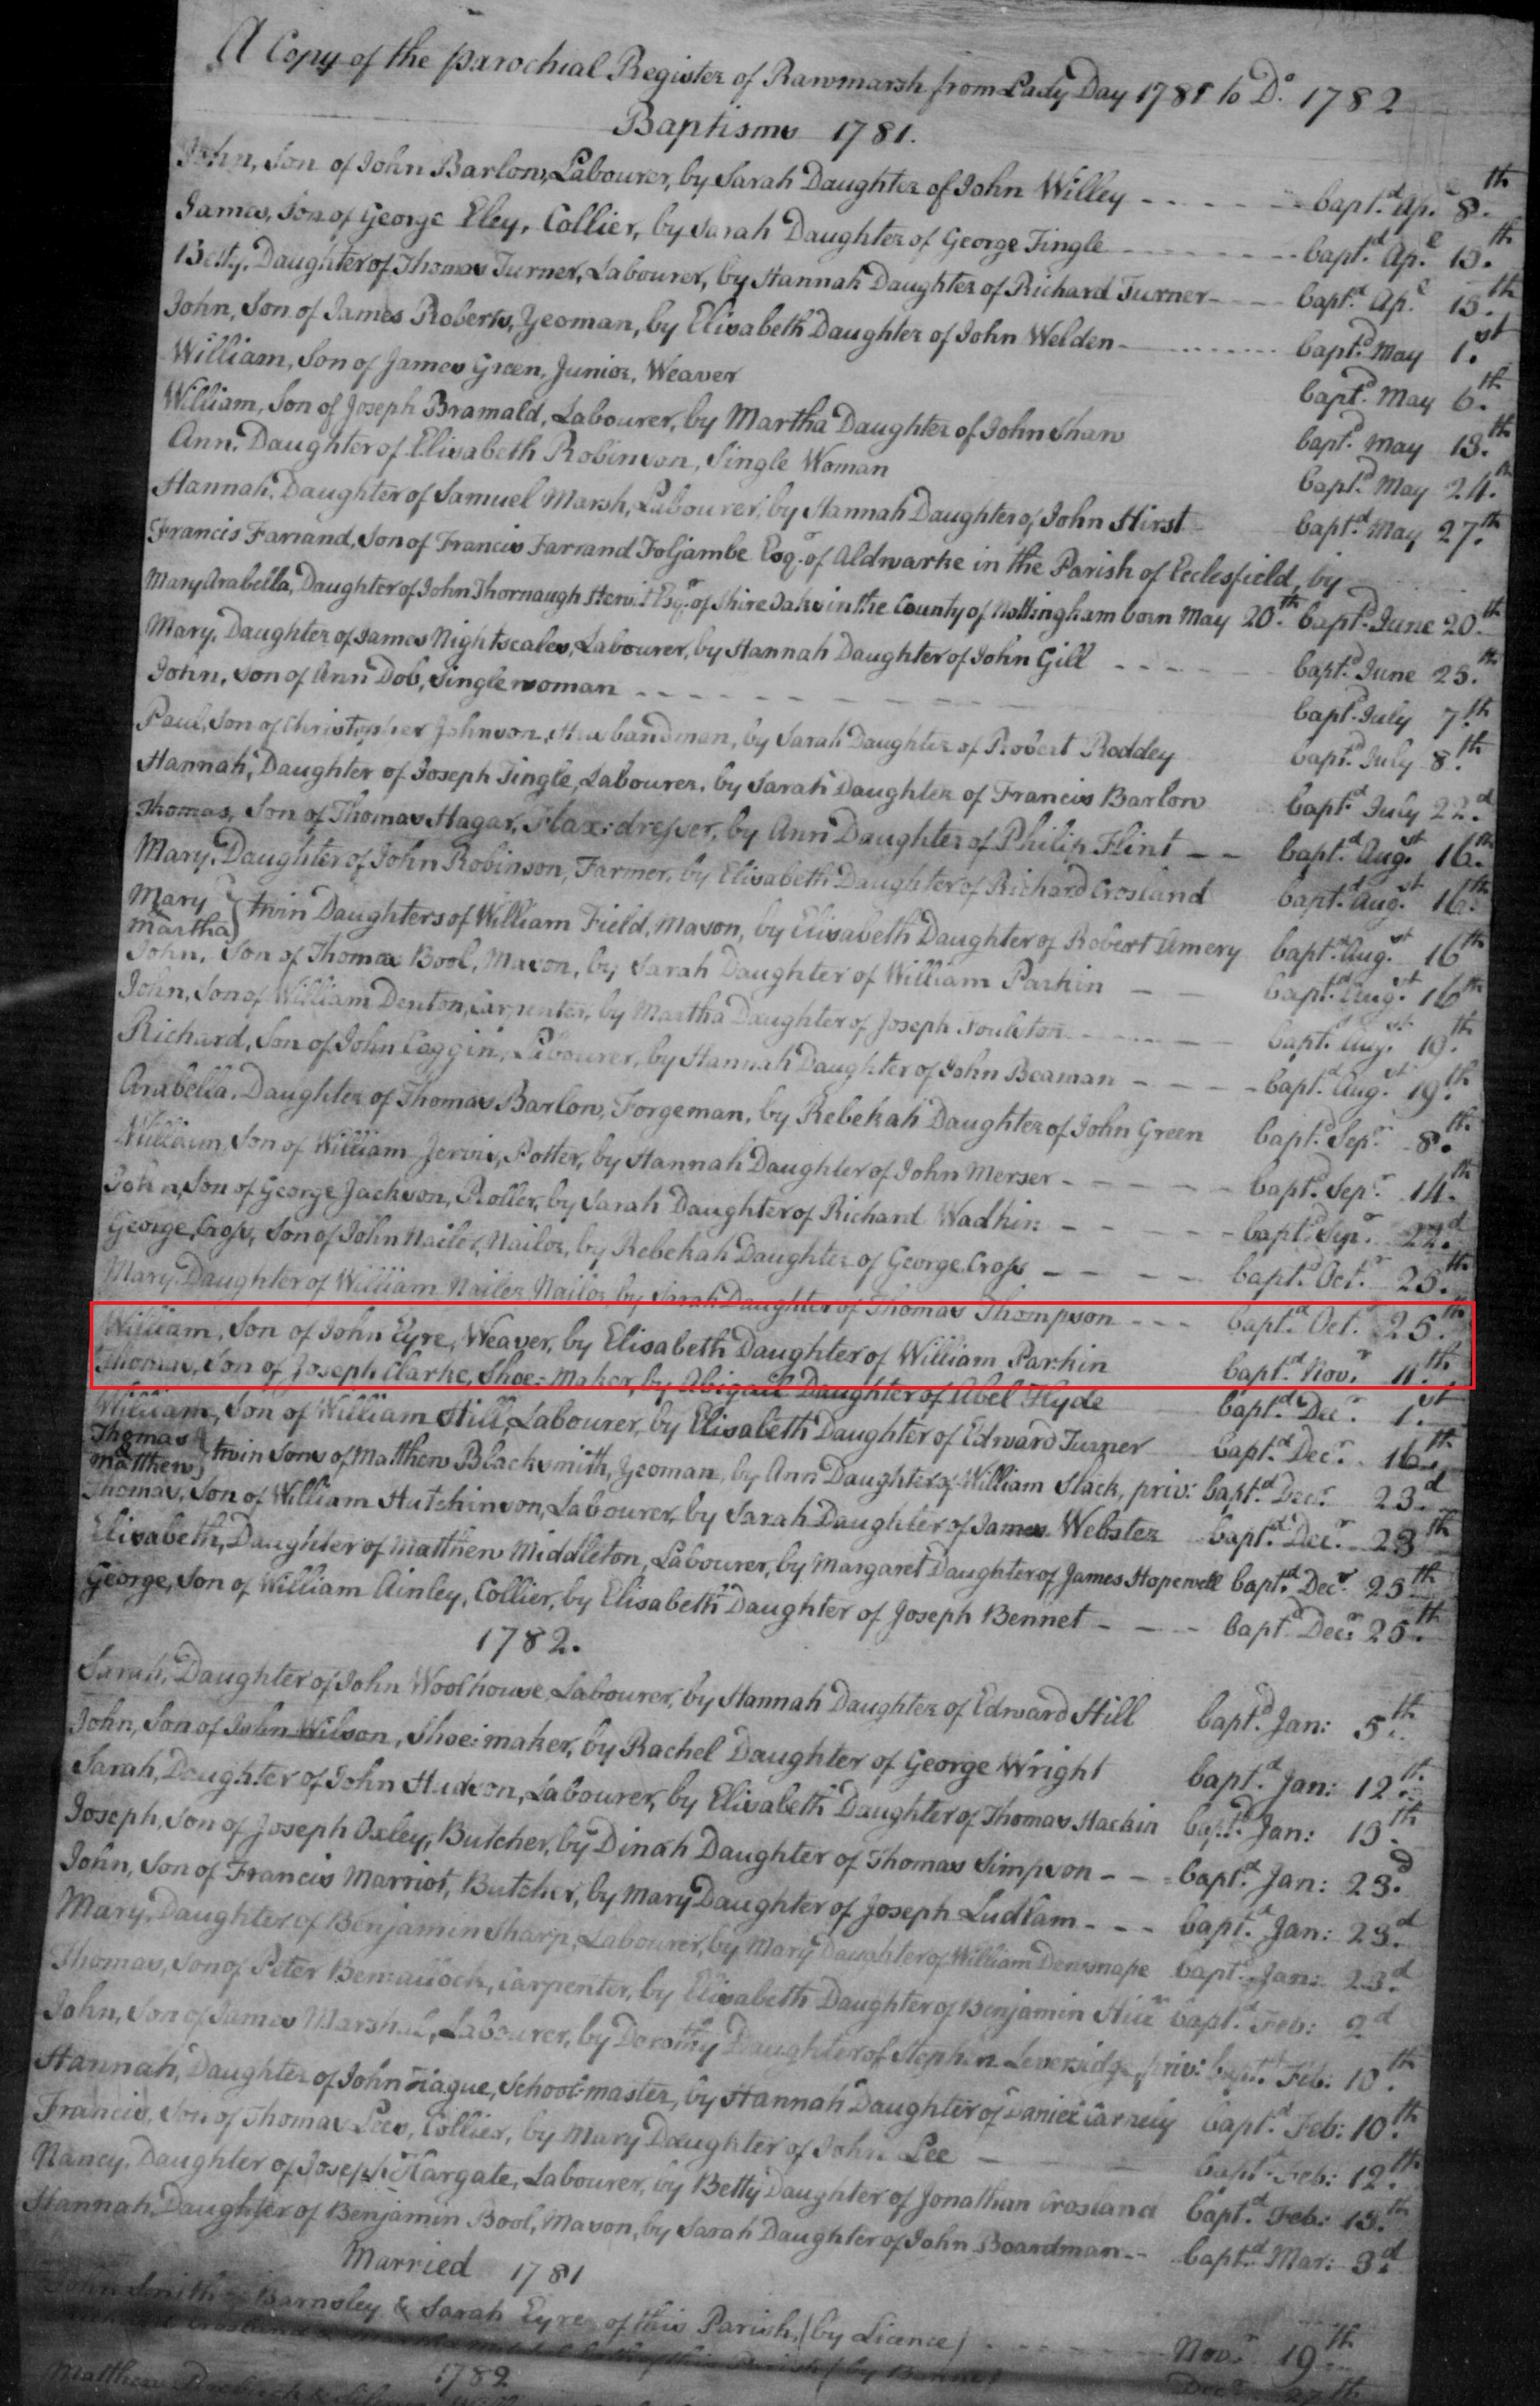 A Copy of the parochial Register of Rawmarsh from Lady Day 1781 to Do. 1782
Baptisms 1781.
John, Son of John Barlow, Labourer, by Sarah Daughter of John Willey - - - - - - bapt.d Ap.l 8.th
James, Son of George Eley, Collier, by Sarah Daughter of George Tingle - - - - - - bapt.d Ap.l 13.th
Betty, Daughter of Thomas Turner, Labourer, by Hannah Daughter of Richard Turner - - - - bapt.d Ap.l 15.th
John, Son of James Roberts, Yeoman, by Elisabeth Daughter of John Welden - - - - - - bapt.d May 1.st
William, Son of James Green, Junior, Weaver bapt.d May 6.th
William, Son of Joseph Bramald, Labourer, by Martha Daughter of John Shaw bapt.d May 13.th
Ann, Daughter of Elisabeth Robinson, Single Woman bapt.d May 24.th
Hannah, Daughter of Samuel Marsh, Labourer, by Hannah Daughter of John Hirst bapt.d May 27.th
Francis Farrand, Son of Francis Farrand Foljambe Esqr. of Aldwarke in the Parish of Ecclesfield, by
Mary Arabella, Daughter of John Thornaugh Hewit Esqr. of Shire Oaks in the County of Nottingham born May 20.th bapt.d June 20.th
Mary, Daughter of James Nightscales, Labourer, by Hannah Daughter of John Gill - - - - bapt.d June 25.th
John, Son of Ann Dob, Single woman - - - - - - bapt.d July 7.th
Paul, Son of Christopher Johnson, Husbandman, by Sarah Daughter of Robert Roddey bapt.d July 8.th
Hannah, Daughter of Joseph Tingle, Labourer, by Sarah Daughter of Francis Barlow bapt.d July 22.d
Thomas, Son of Thomas Hagar, Flax:dresser, by Ann Daughter of Philip Flint - - bapt.d Aug.st 16.th
Mary, Daughter of John Robinson, Farmer, by Elisabeth Daughter of Richard Crosland bapt.d Aug.st 16.th
Mary & Martha } twin Daughters of William Field, Mason, by Elisabeth Daughter of Robert Amery bapt.d Aug.st 16th
John, Son of Thomas Bool, Mason, by Sarah Daughter of William Parkin - - bapt.d Aug.st 16th
John, Son of William Denton, Carpenter, by Martha Daughter of Joseph - - - - bapt.d Aug.st 19.th
Richard, Son of John Coggin, Labourer, by Hannah Daughter of John Beaman - - - - bapt.d Aug.st 19.th
Arabella, Daughter of Thomas Barlow, Forgeman, by Rebekah Daughter of John Green bapt.d Sep.r 8.th
William, Son of William Jervis, Potter, by Hannah Daughter of John Merser - - - - - bapt.d Sep.r 14.th
John, Son of George Jackson, Roller, by Sarah Daughter of Richard Wadkin - - - - - bapt.d Sep.r 22.d
George Cross, Son of John Nailer, Nailor, by Rebekah Daughter of George Cross - - - - bapt.d Oct.r 25.th
Mary, Daughter of William Nailer, Nailor, by Sarah Daughter of Thomas Thompson - - - bapt.d Oct.r 25.th
William, Son of John Eyre, Weaver, by Elisabeth Daughter of William Parkin bapt.d Nov.r 11.th
Thomas, Son of Joseph Clarke, Shoe:Maker, by Abigail Daughter of Abel Hyde bapt.d Dec.r 1.st
William, Son of William Hill, Labourer, by Elisabeth Daughter of Edward Turner bapt.d Dec.r 16.th
Thomas & Matthew } twin Sons of Matthew Blacksmith, Yeoman, by Ann Daughter of William Slack, priv: bapt.d Dec.r 23.d
Thomas, Son of William Hutchinson, Labourer, by Sarah Daughter of James Webster bapt.d Dec.r 23th
Elisabeth, Daughter of Matthew Middleton, Labourer, by Margaret Daughter of James Hopewell bapt.d Dec.r 25th
George, Son of William Ainley, Collier, by Elisabeth Daughter of Joseph Bennet - - - - bapt.d Dec.r 25.th
1782.
Sarah, Daughter of John Woolhouse, Labourer, by Hannah Daughter of Edward Hill bapt.d Jan: 5.th
John, Son of John Wilson, Shoe:maker, by Rachel Daughter of George Wright bapt.d Jan: 12.th
Sarah, Daughter of John Hudson, Labourer, by Elisabeth Daughter of Thomas Hackin bapt.d Jan: 13.th
Joseph, Son of Joseph Oxley, Butcher, by Dinah Daughter of Thomas Simpson - - - bapt.d Jan: 23.d
John, Son of Francis Marriot, Butcher, by Mary Daughter of Joseph Ludlam - - - bapt.d Jan: 23.d
Mary, Daughter of Benjamin Sharp, Labourer, by Mary Daughter of William Densnape bapt.d Jan: 23.d
Thomas, Son of Peter Carpenter, by Elisabeth Daughter of Benjamin bapt.d Feb: 2d
John, Son of James Marshal, Labourer, by Dorothy Daughter of Stephen Leversidge priv: bapt.d Feb: 10.th
Hannah, Daughter of John Hague, School:master, by Hannah Daughter of Daniel bapt.d Feb: 10.th
Francis, Son of Thomas Lees, Collier, by Mary Daughter of John Lee - - bapt.d Feb: 12.th
Nancy, Daughter of Joseph Hargate, Labourer, by Betty Daughter of Jonathan Crosland bapt.d Feb: 13.th
Hannah, Daughter of Benjamin Bool, Mason, by Sarah Daughter of John Boardman - - bapt.d Mar: 3.d
Married 1781
John Smith of Barnsley & Sarah Eyre of this Parish, (by Licence) - - - - - - Nov.r 19.th
of this Parish (by Banns) Dec.r 27.th
1782
Matthew